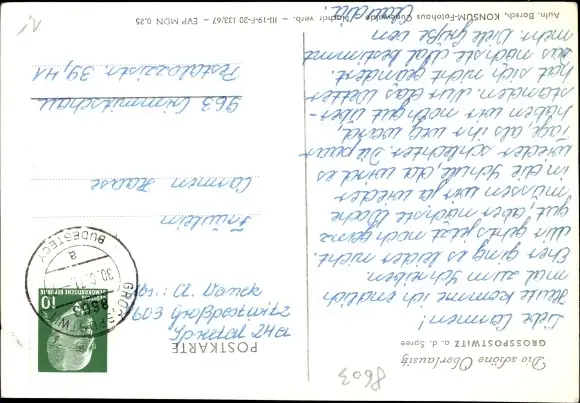 Die schöne Oberlausitz
GROSSPOSTWITZ a. d. Spree
Liebe Carmen!
Heute komme ich endlich
mal zum Schreiben.
Eher ging es leider nicht.
Wir geht's jetzt noch ganz
gut, aber nächste Woche
müssen wir ja wieder
in die Schule, da wird es
wieder schlechter. Die paar
Tage, als ihr weg ward,
haben wir noch gut über-
standen. Nur das Wetter
hat sich nicht geändert.
Das nächste Mal bestimmt
mehr. Viele Grüße von
Claudia.
POSTKARTE
8603
GROSSPOSTWITZ
8605
30.8.71
a
BUDESTECY
10
DEUTSCHE DEMOKRATISCHE REPUBLIK
Fräulein
Carmen Haase
963 Crimmitschau
Pestalozzistr. 39, 41
Aufn. Borsch, KONSUM-Fotohaus Cunewalde
Nachdr. verb. – III-19-F-20 133/67 – EVP MDN 0,25